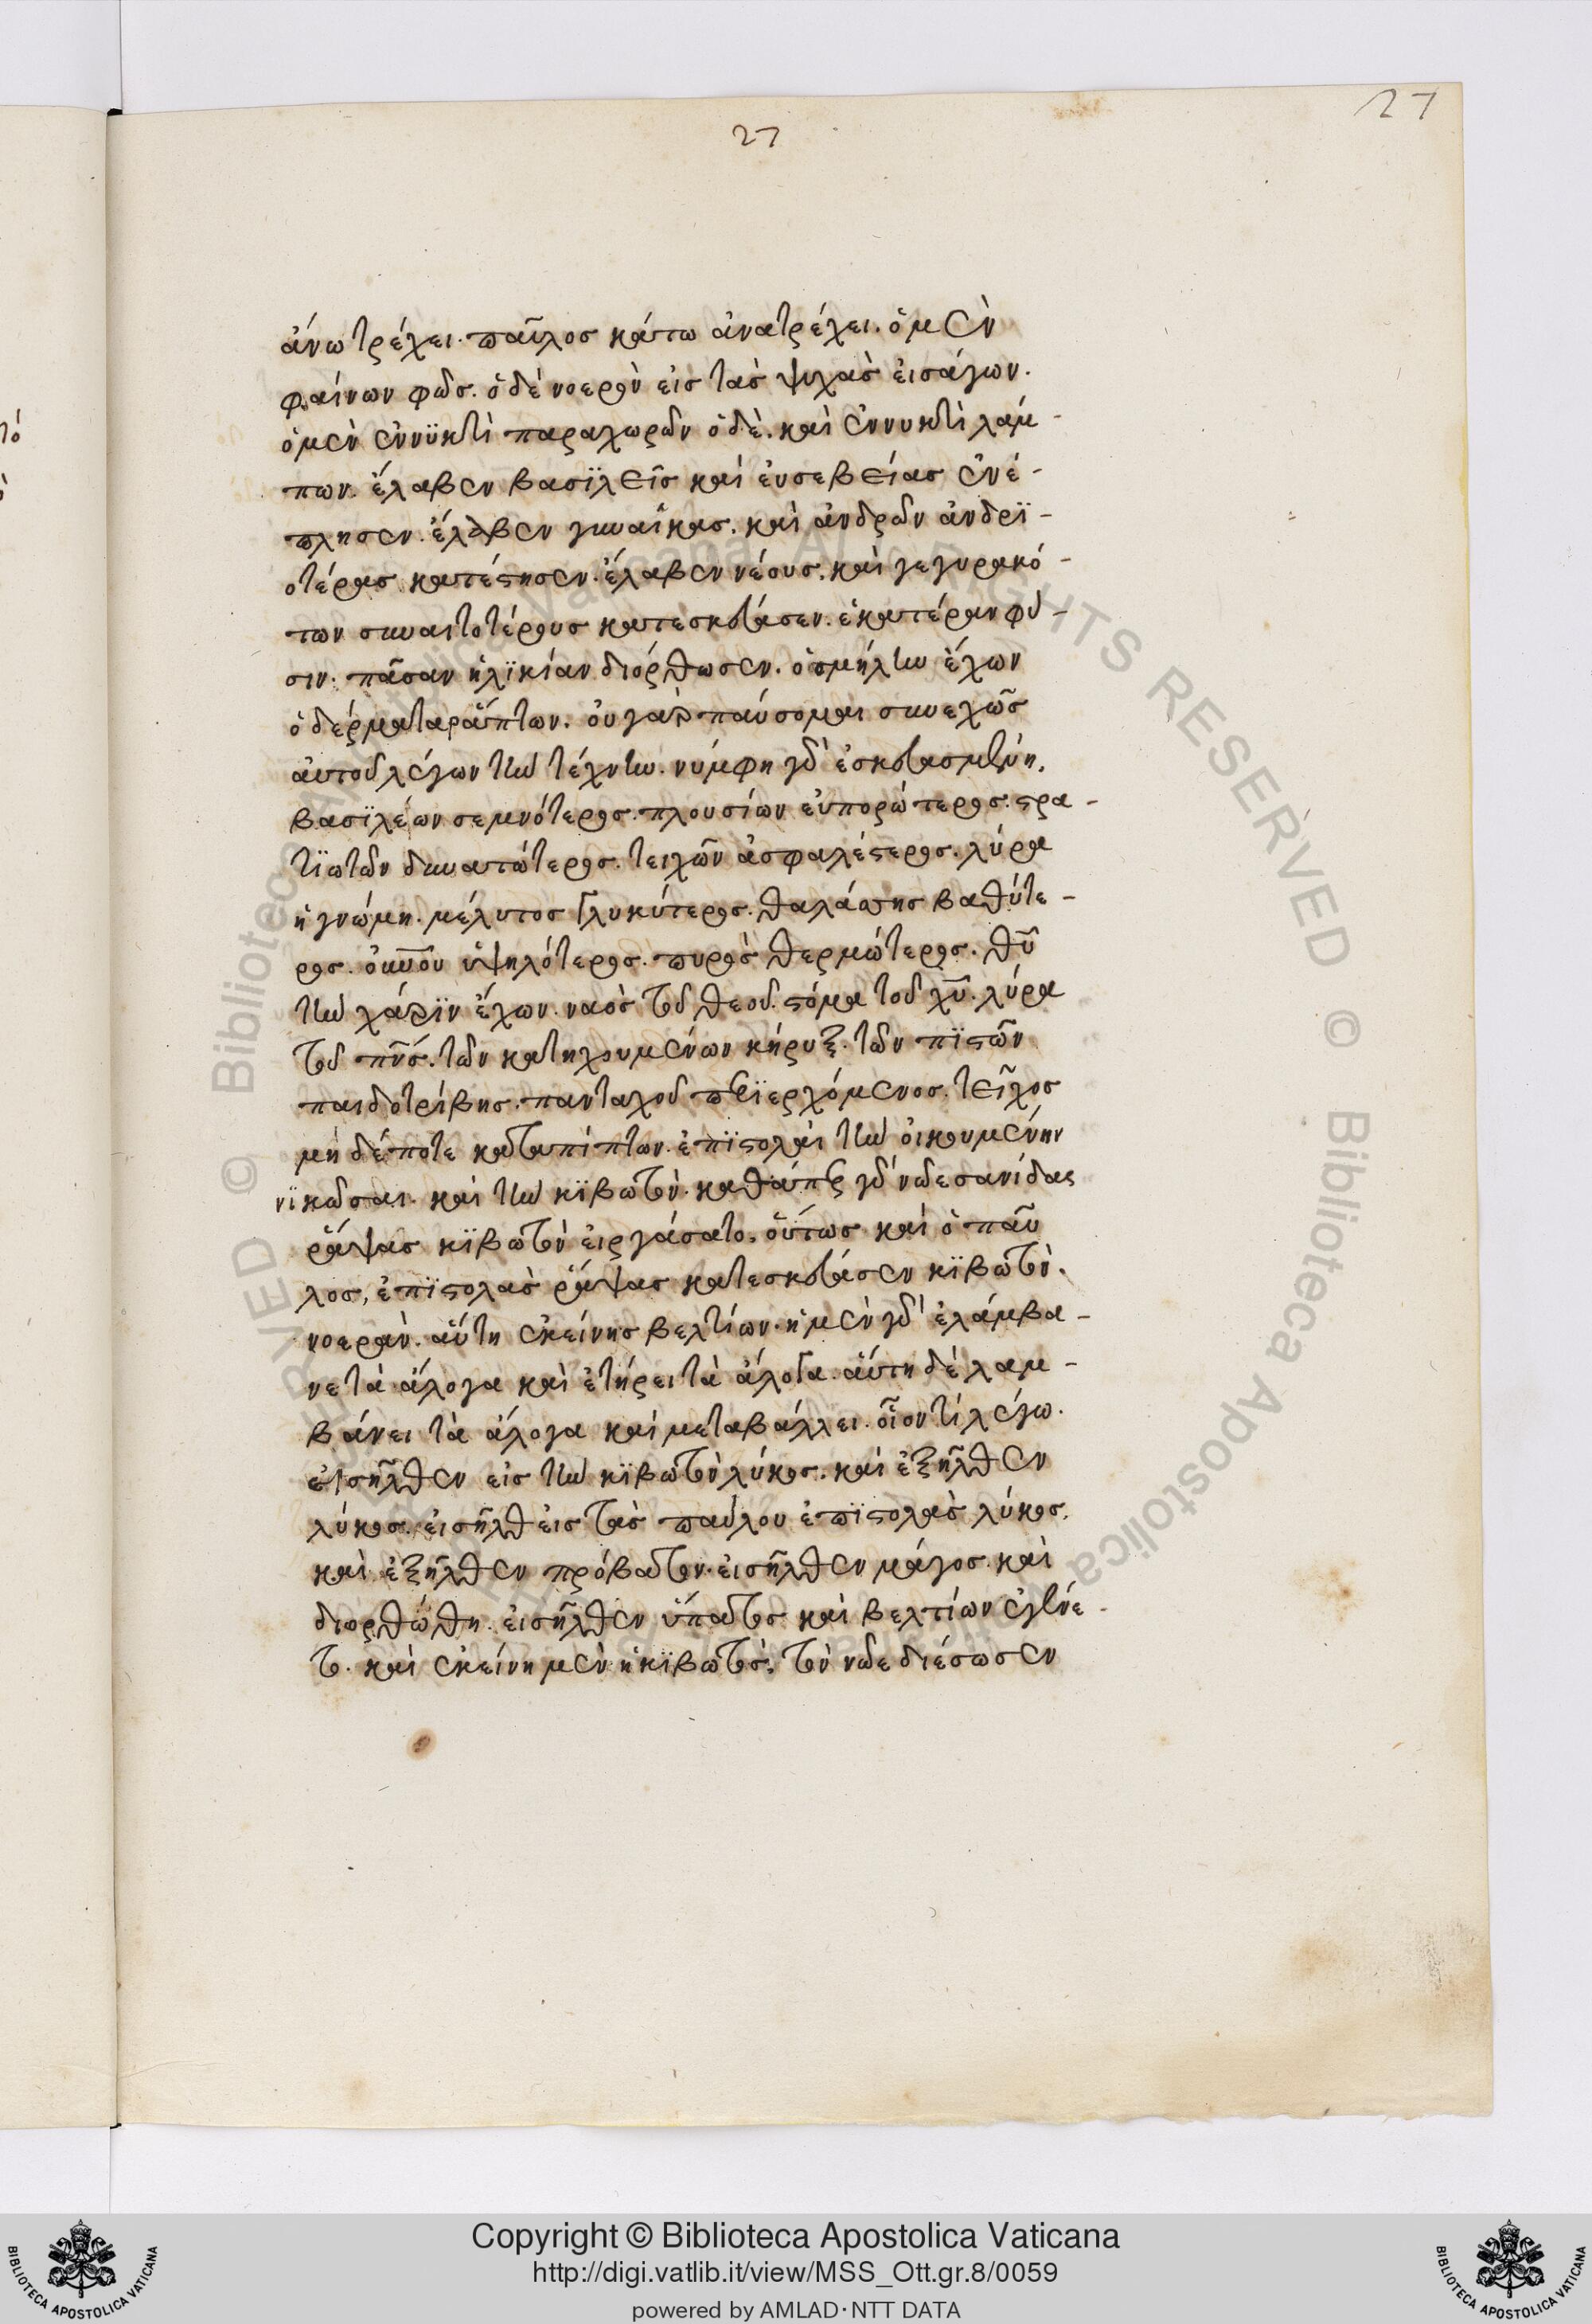 27
27
ἄνω τρέχει. παῦλος κάτω ἀνατρέχει. ὁ μὲν
φαίνων φῶς. ὁ δὲ νοερὸν εἰς τὰς ψυχὰς εἰσάγων.
ὁ μὲν ἐν νϋκτὶ παραχωρῶν ὁ δὲ. καὶ ἐν νυκτὶ λάμ-
πων. ἔλαβεν βασϊλεῖς καὶ εὐσεβείας ἐνέ-
πλησεν. ἔλαβεν γυναῖκας. καὶ ἀνδρῶν ἀνδρϊ-
οτέρας κατέστησεν. ἔλαβεν νέους. καὶ γεγυρακό-
των συναιτοτέρους κατεσκεύασεν. ἑκατέραν φύ-
σιν. πᾶσαν ἡλϊκίαν διόρθωσεν. ὁ σμήλην ἔχων
ὁ δέρματα ράπτων. οὐ γὰρ παύσομαι συνεχῶς
αὐτοῦ λέγων τὴν τέχνην. νύμφη γὰρ ἐσκευασμένη.
βασϊλέων σεμνότερος. πλουσίων εὐπορώτερος. στρα-
τϊωτῶν δυνατώτερος. τειχῶν ἀσφαλέστερος. λύρα
ἡ γνώμη. μέλυτος γλυκύτερος. θαλάσσης βαθύτε-
ρος. οὐνοῦ ὑψηλότερος. πυρὸς θερμώτερος. θῦ
τὴν χάρϊν ἔχων. ναὸς τοῦ θεοῦ. στόμα τοῦ χῦ. λύρα
τοῦ πνς. τῶν κατηχουμένων κήρυξ. τῶν πϊστῶν
παιδοτρίβης. πανταχοῦ περϊερχόμενος. τεῖχος
μὴ δέποτε καταπίπτων. ἐπϊστολαὶ τὴν οἰκουμένην
νϊκῶσαι. καὶ τὴν κϊβωτὸν. καθάπερ γὰρ νῶε σανίδας
ράψας κϊβωτὸν εἰργάσατο. οὕτως καὶ ὁ παῦ
λος, ἐπϊστολὰς ράψας κατεσκεύασεν κϊβωτὸν.
νοερὰν. αὕτη ἐκείνης βελτίων. ἡ μὲν γὰρ ἐλάμβα-
νε τὰ ἄλογα καὶ ἐτήρει τὰ ἄλογα. αὕτη δὲ λαμ-
βάνει τὰ ἄλογα καὶ μεταβάλλει. οἷον τί λέγω.
εἰσῆλθεν εἰς τὴν κϊβωτὸν λύκος. καὶ ἐξῆλθεν
λύκος. εἰσῆλθ εἰς τὰς παύλου ἐπϊστολὰς λύκος.
καὶ ἐξῆλθεν πρόβατον. εἰσῆλθεν μάγος. καὶ
διορθώθη. εἰσῆλθεν ὕπατος καὶ βελτίων ἐγένε-
το. καὶ ἐκείνη μὲν ἡ κϊβωτὸς. τὸν νῶε διέσωσεν
Copyright © Biblioteca Apostolica Vaticana
http://digi.vatlib.it/view/MSS_Ott.gr.8/0059
powered by AMLAD·NTT DATA